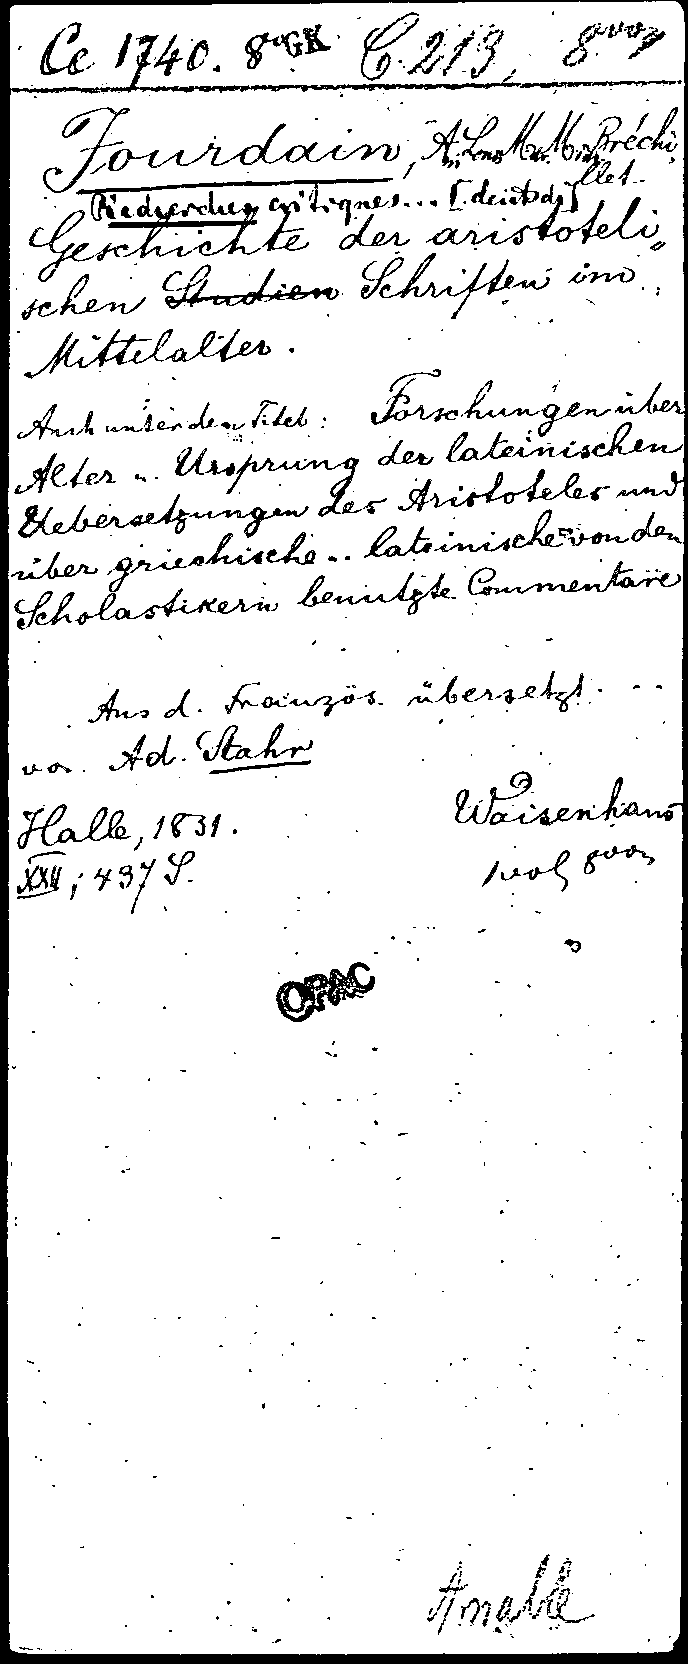 Ce 1740. 8° GK C. 213, 8vo
Jourdain, A. L. M. M. Bréchi-
llet.
Recherches critiques... [deutsch]
Geschichte der aristoteli-
schen Studien Schriften im
Mittelalter.
Auch unter dem Titel: Forschungen über
Alter u. Ursprung der lateinischen
Uebersetzungen des Aristoteles und
über griechische u. lateinische von den
Scholastikern benutzte Commentare
Aus d. Französ. übersetzt
von Ad. Stahr
Halle, 1831. Waisenhaus
XXVI; 437 S. 1 vol 8vo
OPAC
Amable